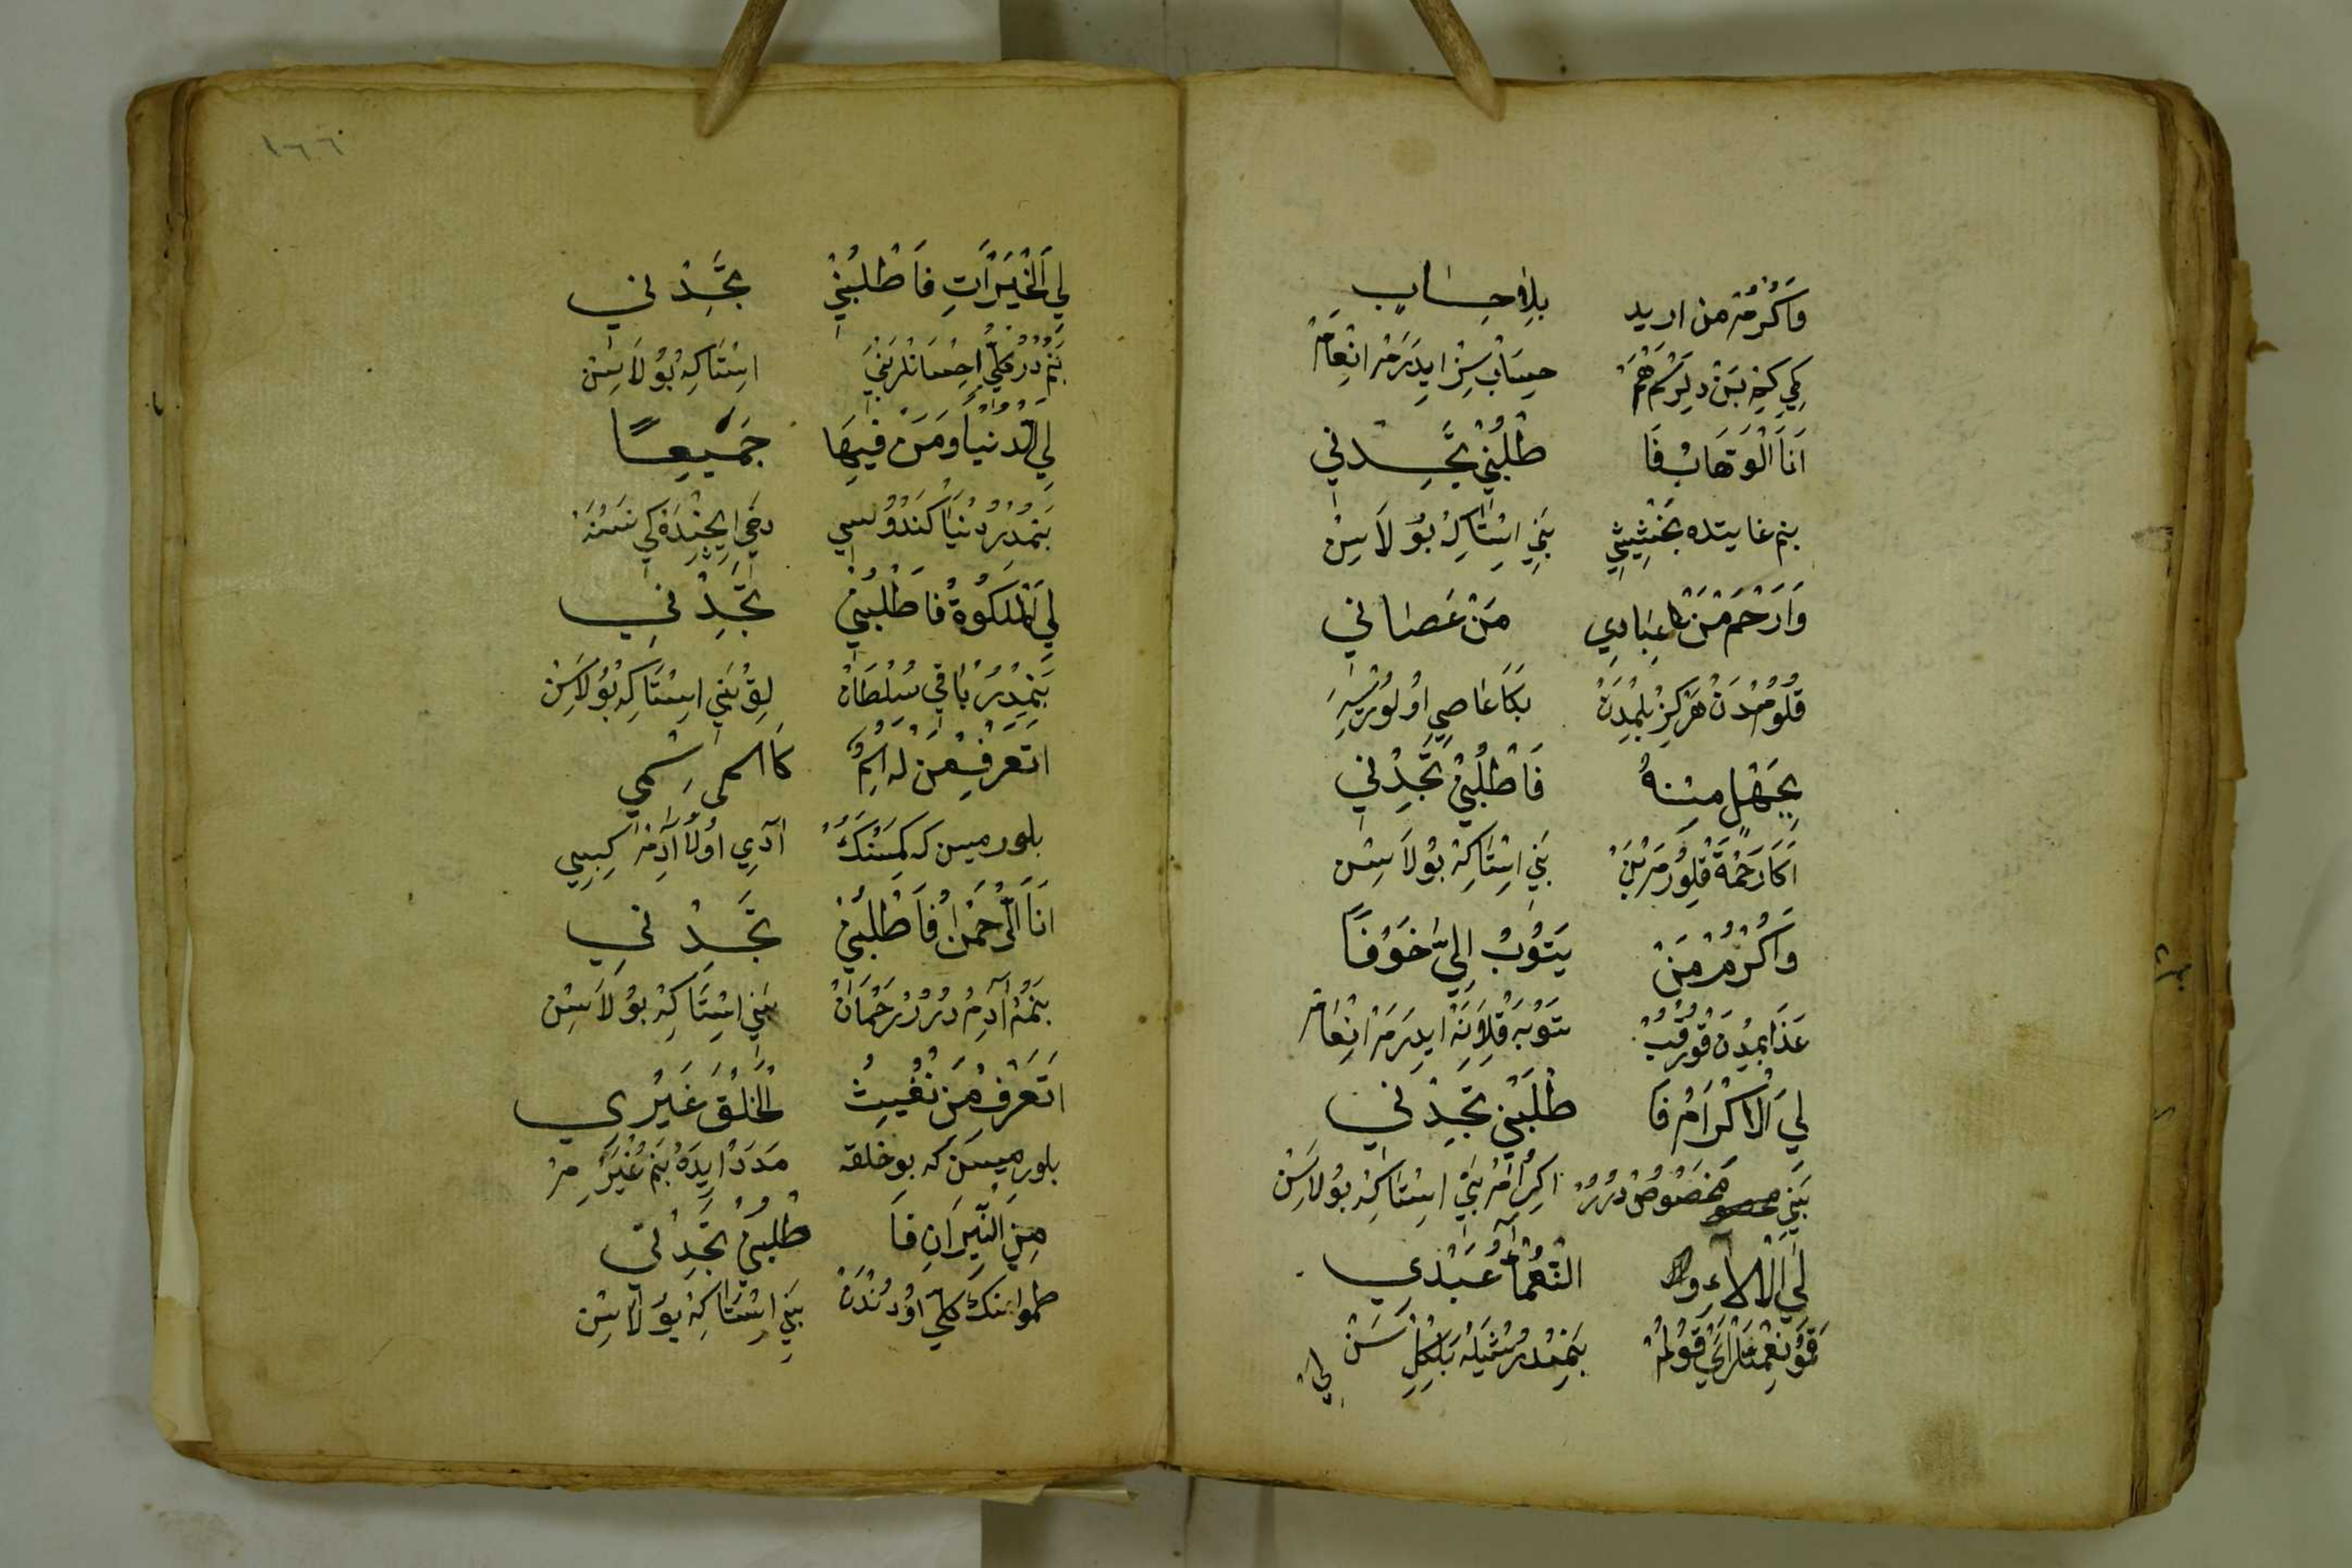 وَاَكْرُمُ مَن اريد بِلَا حِسَابٍ
كِي كِنِه بَنْ دِلَرْسَمْ هَمْ حِسَابْ سِزْ ايدَرَمْ انْعَامْ
اَنَا الْوَهَّابُ فَا طْلُبْنِي تَجِدْنِي
بنم غايتده بَخْشِيشِي بَنِي اسْتَاكِه بُولَاسِنْ
وَارْحَمُ مَنْ عِبَادِي مَنْ عَصَانِي
قُلُومُدَنْ هَرْ كِزْ بِلْمَدِنْ بَكَا عَاصِي اُولُورْسَه
بِجَهْلٍ مِنْهُ فَاطْلُبْنِي تَجِدْنِي
اَكَا رَحْمَةْ قِلُورَمْ بَنْ بَنِي اسْتَاكِه بُولَاسِنْ
وَاَكْرُمُ مَنْ يَتُوبُ اِلَيَّ خَوْفًا
عَذَابُمْدَنْ قُورْقُبْ تَوْبَه قِلَانَه ايدَرَمْ انْعَامْ
لِيَ الْاِكْرَامُ فَا طْلُبْنِي تَجِدْنِي
بَنِي مَخْصُوصْ دُرُرْ اكِرْامْ بَنِي اسْتَاكِه بُولَاسِنْ
لِيَ الْآلَاءِ و النَّعْمَآءُ عَبْدِي
قَمُو نِعْمَتْلَرْ اَيْ قُولُمْ بَنِمْدُرْ شَيْلَه بَلْكِلْ سَنْ
لِيَ
١٦٦
لِيَ الْخَيْرَاتِ فَاطْلُبْنِي تَجِدْنِي
بَنُمْ دُرْ كُلِّي اِحْسَانْلَرْ بَنِي اسْتَاكِه بُولَاسِنْ
لِيَ الدُّنْيَا وَمَنْ فِيهَا جَمِيعًا
بَنُمْدُرْ دُنْيَا كَنْدُوسِي دَخِي اِيچِنْدَه كِي نَسْنَه
لِيَ الْمَلَكُوةُ فَاطْلُبْنِي تَجِدْنِي
بَنِمْدُرْ بَاقِي سُلْطَانْ لِقْ بَنِي اسْتَاكِه بُولَاسِنْ
اتَعْرِفُ مَنْ لَهُ اسْمٌ كَاسمى رَسْمِي
بلورميسن كه كِمْسَنَنَكْ آدِي اُولَا آدِمْ كِبِي
اَنَا الرَّحْمَنُ فَاطْلُبْنِي تَجِدْنِي
بَنُمْ آدِمْ دُرُرْ رَحْمَانْ بَنِي اسْتَاكِه بُولَاسِنْ
اَتَعْرِفُ مَنْ يُغِيثُ الْخَلْقَ غَيْرِي
بلورميسَن كه بو خلقه مَدَدْ ايدَه بَنُمْ غَيْرِمْ
مِنَ النِّيرَانِ فَا طْلُبْنِي تَجِدْنِي
طموانك كلّي اوُدنْدَنْ بَنِي اسْتَاكِه بُولَاسِنْ